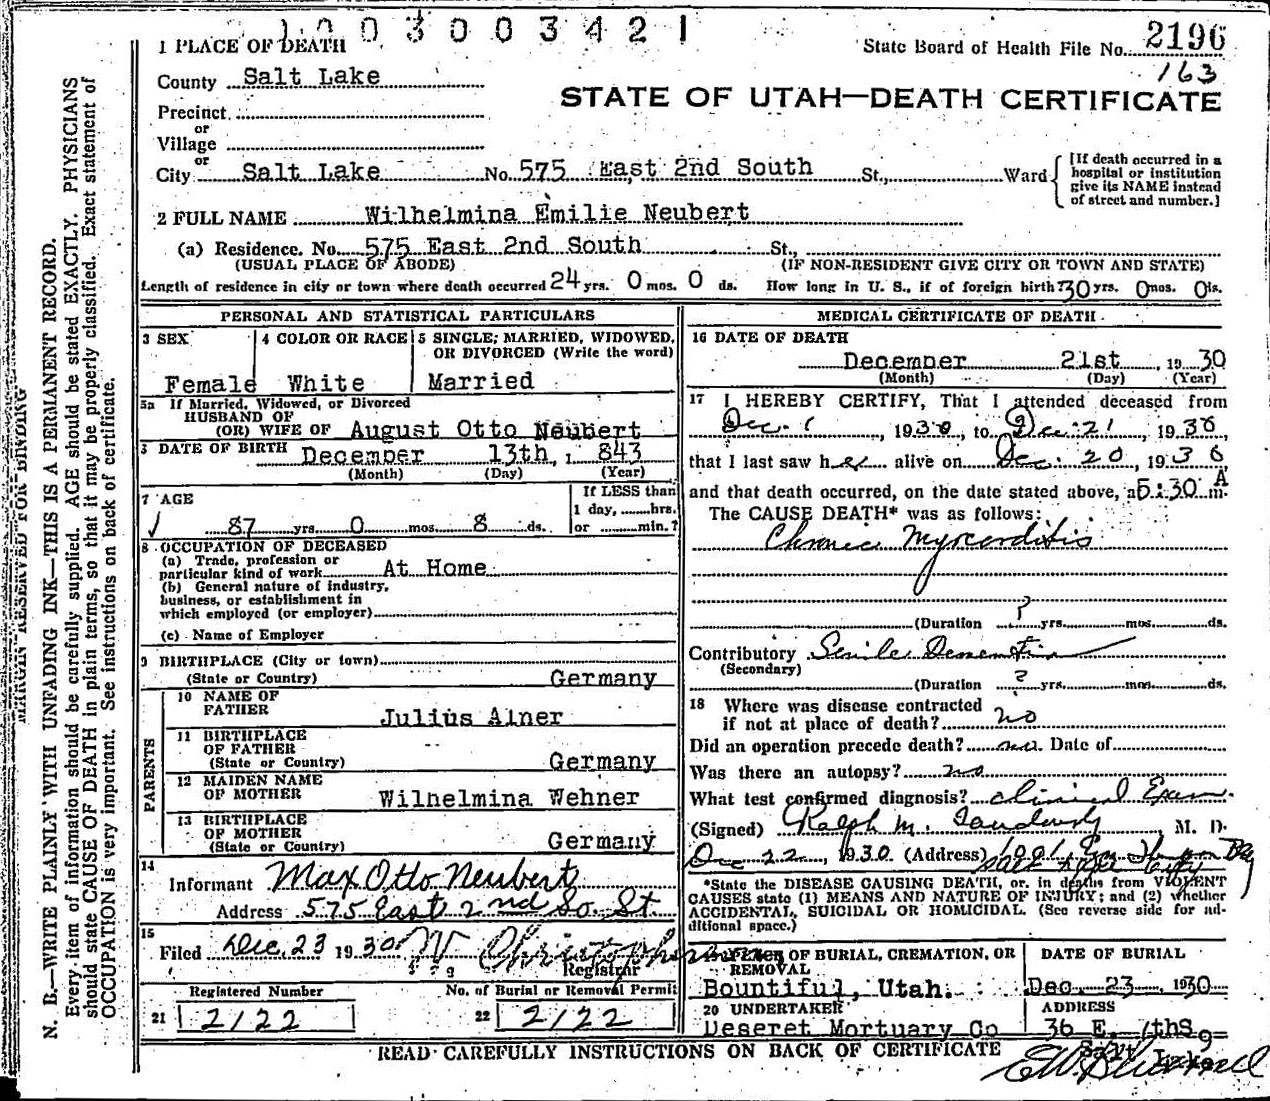 1003003421
1 PLACE OF DEATH
State Board of Health File No. 2196
163
County Salt Lake
STATE OF UTAH—DEATH CERTIFICATE
Precinct
or
Village
or
City Salt Lake No. 575 East 2nd South St., Ward
[If death occurred in a
hospital or institution
give its NAME instead
of street and number.]
2 FULL NAME Wilhelmina Emilie Neubert
(a) Residence. No. 575 East 2nd South St.,
(USUAL PLACE OF ABODE) (IF NON-RESIDENT GIVE CITY OR TOWN AND STATE)
Length of residence in city or town where death occurred 24 yrs. 0 mos. 0 ds. How long in U. S., if of foreign birth? 30 yrs. 0 mos. 0 ds.
PERSONAL AND STATISTICAL PARTICULARS
3 SEX
Female
4 COLOR OR RACE
White
5 SINGLE, MARRIED, WIDOWED,
OR DIVORCED (Write the word)
Married
5a If Married, Widowed, or Divorced
HUSBAND OF
(OR) WIFE OF August Otto Neubert
DATE OF BIRTH December 13th, 1 843
(Month) (Day) (Year)
7 AGE
87 yrs. 0 mos. 8 ds.
If LESS than
1 day, hrs.
or min.?
8 OCCUPATION OF DECEASED
(a) Trade, profession or
particular kind of work At Home
(b) General nature of industry,
business, or establishment in
which employed (or employer)
(c) Name of Employer
9 BIRTHPLACE (City or town)
(State or Country) Germany
PARENTS
10 NAME OF
FATHER Julius Alner
11 BIRTHPLACE
OF FATHER
(State or Country) Germany
12 MAIDEN NAME
OF MOTHER Wilhelmina Wehner
13 BIRTHPLACE
OF MOTHER
(State or Country) Germany
14
Informant Max Otto Neubert
Address 575 East 2nd So. St.
15
Filed Dec. 23 1930
Registrar
Registered Number
21 2122
No. of Burial or Removal Permit
22 2122
MEDICAL CERTIFICATE OF DEATH
16 DATE OF DEATH
December 21st, 1930
(Month) (Day) (Year)
17 I HEREBY CERTIFY, That I attended deceased from
Dec. 1, 1930, to Dec. 21, 1930
that I last saw her alive on Dec. 20, 1930
and that death occurred, on the date stated above, at 5:30 A m.
The CAUSE DEATH* was as follows:
Chronic Myocarditis
(Duration ? yrs. mos. ds.
Contributory Senile Dementia
(Secondary)
(Duration ? yrs. mos. ds.
18 Where was disease contracted
if not at place of death? no
Did an operation precede death? no. Date of
Was there an autopsy? no
What test confirmed diagnosis? Clinical Exam.
(Signed) Ralph M. , M. D.
Dec 22, 1930. (Address)
Salt Lake City
*State the DISEASE CAUSING DEATH, or, in deaths from VIOLENT
CAUSES state (1) MEANS AND NATURE OF INJURY; and (2) whether
ACCIDENTAL, SUICIDAL OR HOMICIDAL. (See reverse side for ad-
ditional space.)
PLACE OF BURIAL, CREMATION, OR
REMOVAL
Bountiful, Utah.
DATE OF BURIAL
Dec. 23 1930
20 UNDERTAKER
Deseret Mortuary Co
ADDRESS
36 E. 7th So
Salt Lake
READ CAREFULLY INSTRUCTIONS ON BACK OF CERTIFICATE
MARGIN RESERVED FOR BINDING
N. B.—WRITE PLAINLY WITH UNFADING INK—THIS IS A PERMANENT RECORD.
Every item of information should be carefully supplied. AGE should be stated EXACTLY. PHYSICIANS
should state CAUSE OF DEATH in plain terms, so that it may be properly classified. Exact statement of
OCCUPATION is very important. See instructions on back of certificate.